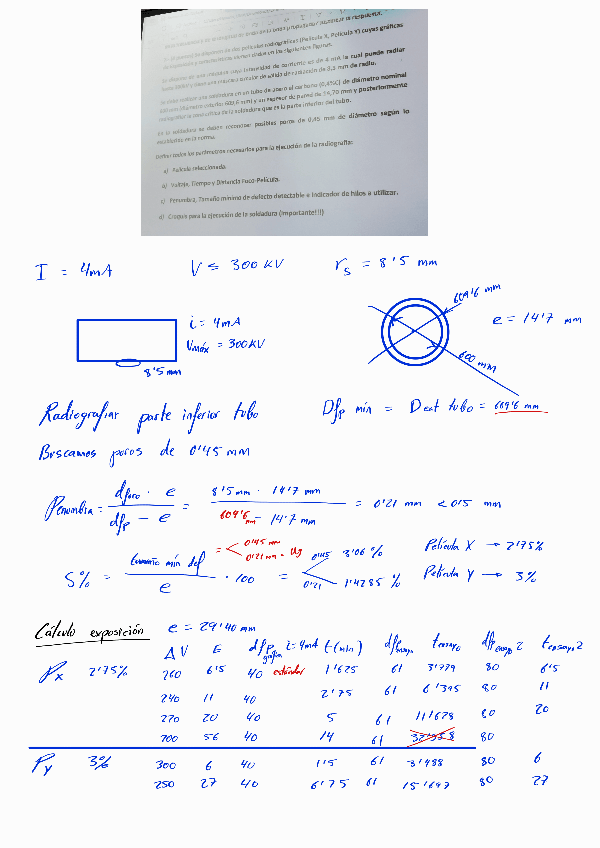 En el almacén se disponen de dos películas radiográficas (Película X, Película Y) cuyas gráficas
Se dispone de una máquina cuya intensidad de corriente es de 4 mA la cual puede radiar
hasta 300kV y tiene una máscara o malor de salida de radiación de 8.5 mm de radio.
Se debe realizar una soldadura en un tubo de acero al carbono (0,4%C) de diámetro nominal
600 mm (diámetro exterior 609,6 mm) y un espesor de pared de 14,70 mm y posteriormente
radiografiar la zona crítica de la soldadura que es la parte inferior del tubo.
En la soldadura se deben reconocer posibles poros de 0,45 mm de diámetro según lo
establecido en la norma.
Definir todos los parámetros necesarios para la ejecución de la radiografía:
a) Película seleccionada.
b) Voltaje, Tiempo y Distancia Foco-Película.
c) Penumbra, Tamaño mínimo de defecto detectable e Indicador de hilos a utilizar.
d) Croquis para la ejecución de la soldadura (Importante!!!)
I = 4mA V ≤ 300 KV rs = 8'5 mm
609'6 mm
i = 4mA e = 14'7 mm
Vmáx = 300KV
600 mm
8'5 mm
Radiografiar parte inferior tubo Dfp min = Dext tubo = 609'6 mm
Buscamos poros de 0'45 mm
Penumbra = dfoco · e / dfp - e = 8'5 mm · 14'7 mm / 609'6 mm - 14'7 mm = 0'21 mm < 0'5 mm
S% = tamaño mín def / e · 100 = 0'45 mm 0'21 mm = Ug = 0'45 3'06 % 0'21 1'4285 % Película X → 2'75%
Película Y → 3%
Cálculo exposición e = 29'40 mm
ΔV E dfp gráfica i=4mA t(min) dfp ensayo tensayo dfp ensayo 2 tensayo2
Px 2'75% 260 6'5 40 estándar 1'625 61 3'779 80 6'5
240 11 40 2'75 61 6'395 80 11
220 20 40 5 61 11'628 80 20
200 56 40 14 61 80
Py 3% 300 6 40 1'5 61 3'488 80 6
250 27 40 6'75 61 15'697 80 27